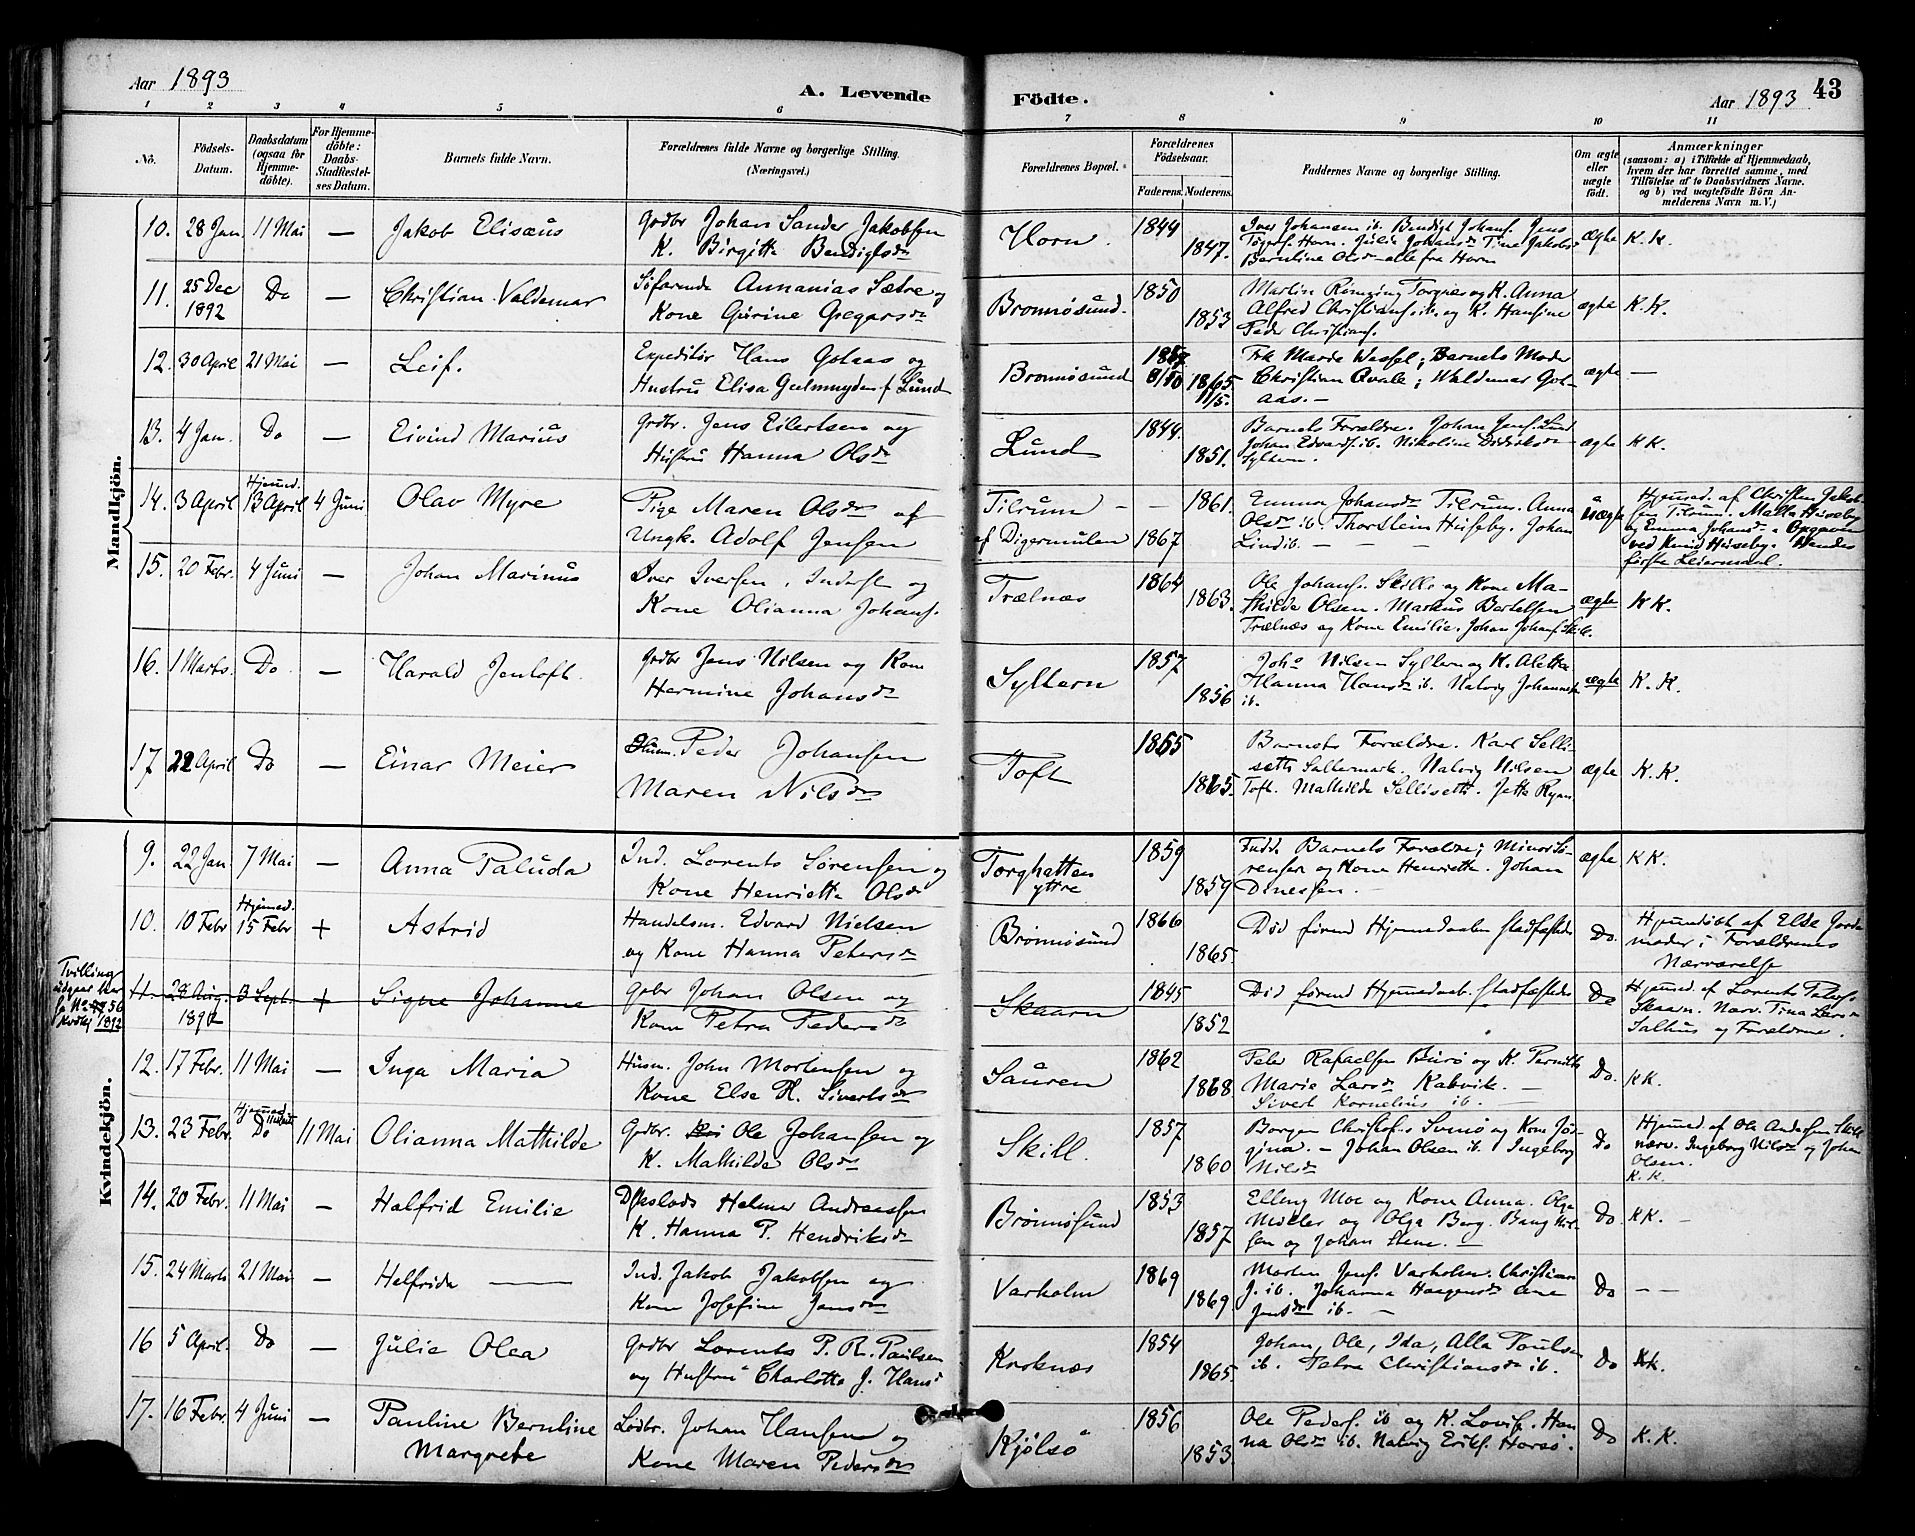 Aar 1893
A. Levende Födte.
Aar 1893
43
1 2 3 4 5 6 7 8 9 10 11
No.
Födsels-Datum.
Daabsdatum (ogsaa for Hjemme-döbte).
For Hjemme-döbte: Daabs-Stadfæstel-ses Datum.
Barnets fulde Navn.
Forældrenes fulde Navne og borgerlige Stilling.
(Næringsvei.)
Forældrenes Bopæl.
Forældrenes Födselsaar.
Faderens. Moderens.
Faddernes Navne og borgerlige Stilling.
Om ægte eller uægte födt.
Anmærkninger
(saasom: a) i Tilfælde af Hjemmedaab,
hvem der har forrettet samme, med
Tilföielse af to Daabsvidners Navne.
og b) ved uægtefödte Börn An-
melderens Navn m. V.)
Mandkjön.
10. 28 Jan. 11 Mai — Jakob Elisæus
Grdbr Johan Sander Jakobsen
K. Birgitte Bendigtsdr
Horn. 1844 1847.
Iver Johansen ib. Bendigt Johans. Jens
Horn. Julie Johansdr Tina Jakobs
Berntine Olsdr alle fra Horn
ægte K.K.
11. 25 Dec 1892 Do — Christian Valdemar
Söfarende Annanias Sætre og
Kone Gurine Gregersdr
Brønnøsund. 1850 1853
Martin Torgnæs og K. Anna
Alfred Christians. ib. og K. Hansine
Peder Christians.
ægte K.K.
12. 30 April 21 Mai — Leif.
Expeditör Hans Gotaas og
Hustru Elisa Gulmnyden f. Lund
Brønnøsund 1865. 11/5.
Frk Marda Wessel; Barnets Moder
Christian Qvale; Waldemar Got-
aas. —
ægte —
13. 4 Jan. Do — Eivind Marius
Grdbr. Jens Eilertsen og
Hustru Hanna Olsdr
Lund 1844. 1851.
Barnets Forældre. Johan Jens. Lund
Johan Edvards. ib. Nikoline Didriksdr
Syltern.
ægte K K.
14. 3 April Hjemmed. 13 April 4 Juni Olav Myre
Pige Maren Olsdr af
Ungk. Adolf Jensen
Tilrum — — 1861.
af Digermulen 1867
Emma Johansdr Tilrum. Anna
Olsdr ib. Thorstein Huseby. Johan
Lind ib. — — —
Uægte
Hjemmed. af Christen Jakob-
sen Tilrum. Malla Huseby
og Emma Johansdr. Opgaven
ved Knud Huseby. Hendes
første Leiermaal.
15. 20 Febr. 4 Juni — Johan Marinus
Iver Iversen. Inderst og
Kone Olianna Johans.
Trælnæs 1864 1863.
Ole Johans. Skille og Kone Ma-
thilde Olsen. Markus Bertelsen
Trælnæs og Kone Emilie. Johan Johans. Skil.
ægte KK.
16. 1 Marts. Do — Harald Jentoft.
Grdbr Jens Nilsen og Kone
Hermine Johansdr
Syltern 1857 1856
Johs Nilsen Syltern og K. Alette
Hanna Hansdr ib. Nalvig Johannes
ib.
ægte K.K.
17. 22 April Do — Einar Meier
Husm. Peder Johansen
Maren Nilsdr
Toft 1865 1865.
Barnets Forældre. Karl Selli-
seth Saltermark. Nalvig Nilsen
Toft. Mathilde Selliseth. Jetta
ægte K.K.
Kvindekjön.
9. 22 Jan. 7 Mai — Anna Paluda
Ind. Lorents Sörensen og
Kone Henriette Olsdr
Torghatten yttre 1859 1859
Fadd. Barnets Forældre; Minor Sö-
rensen og Kone Henriette. Johan
Dinessen. —
ægte KK.
10. 10 Febr Hjemmed. 15 Febr + Astrid
Handelsm. Edvard Nielsen
og Kone Hanna Petersdr
Brønnøsund 1866 1865.
Död förend Hjemmedaaben stadfæstedes
Do.
Hjemmedöbt af Else Jorda
moder i Forældrenes
Nærværelse
Tvilling
udgaar her
56
1892
28 Aug. 1892 3 Septr. + Signe Johanne
Grbr Johan Olsen og
Kone Petra Pedersdr
Skaarn 1845 1852
Död förend Hjemmedaab. stadfæstedes
Do
Hjemmed. af Lorents Peters.
Skaarn. Nærv. Tina Larsdr
Salhus og Forældrene.
12. 17 Febr. 11 Mai — Inga Maria
Husm. John Mortensen og
Kone Else K. Sivertsdr
Sauren 1862 1868
Peter Rafaelsen Burø og K. Pernille
Marie Larsdr Kabvik. —
Sivert Kornelius ib. —
Do. KK.
13. 23 Febr. Hjemmed Do 11 Mai Olianna Mathilde
Grdbr. Ole Johansen og
K. Mathilde Olsdr
Skill. 1857 1860
Borger Christofs. Svinø og Kone Jör-
gina. — Johan Olsen ib. Ingeborg
Nilsdr
Do
Hjemmed. af Ole Andersen Skill
nærv. Ingeborg Nilsdr og Johan
Olsen.
K.K.
14. 20 Febr. 11 Mai — Halfrid Emilie
Helmer Andreassen
K. Hanna P. Hendriksdr
Brønnøsund 1853 1857
Elling Moe og Kone Anna. Olga
Möller og Olga Berg. Bang Nil-
sen og Johan Stene. —
Do. KK. —
15. 24 Marts 21 Mai — Helfrida —
Ind. Jakob Jakobsen og
Kone Josefine Jensdr
Varholm 1869 1869
Morten Jens. Varholm. Christian
J. ib. Johanna Haagensdr Ane
Jensdr ib. —
Do — —
16 5 April. Do — Julie Olea
Grdbr Lorents P. R. Paulsen
og Hustru Charlotte J. Hansd
Kroknæs 1854 1865.
Johan, Ole, Ida, Alla Paulsen
ib. Petra Christiansdr ib.
Do KK.
17. 16 Febr. 4 Juni — Pauline Berntine Margrete
Leilbr. Johan Hansen og
Kone Maren Pedersdr
Kjølsø 1856 1853
Ole Peders. ib og K. Lovis. Han
na Olsdr ib. Nalvig Eriks. Horsø.
Do K.K.